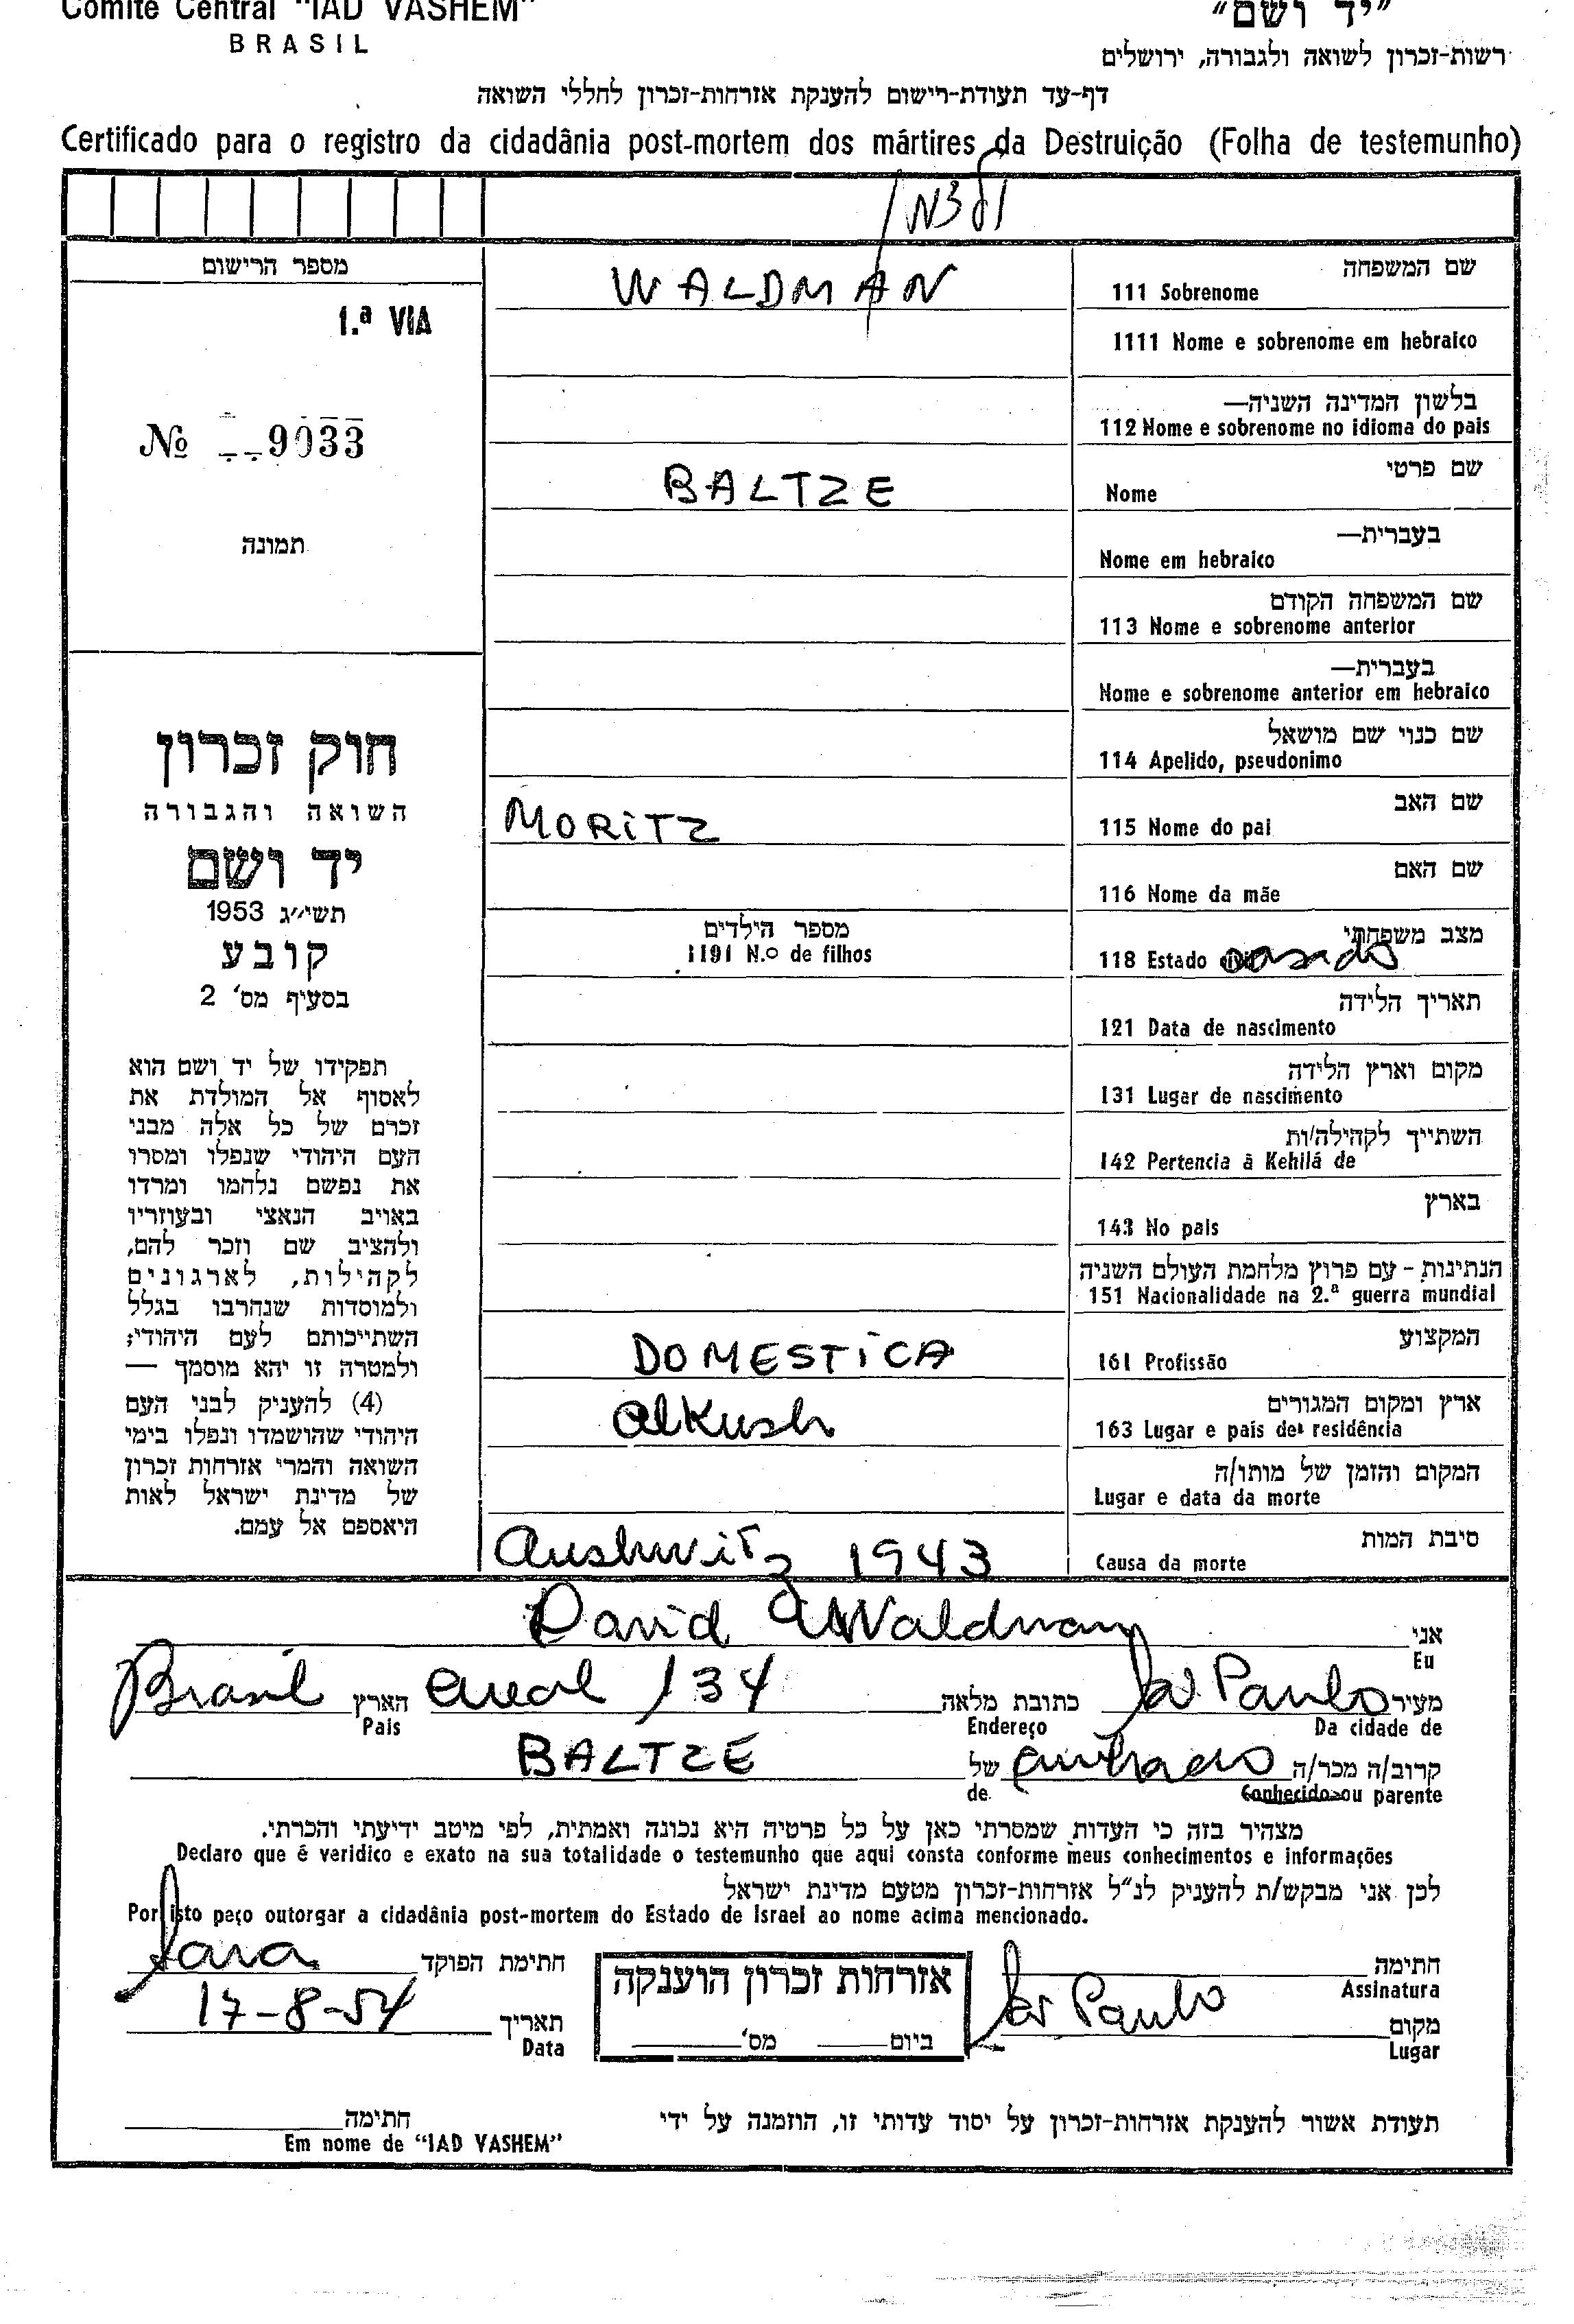 Comité Central "IAD VASHEM"
BRASIL
"יד ושם"
רשות-זכרון לשואה ולגבורה, ירושלים
דף-עד תעודת-רישום להענקת אזרחות-זכרון לחללי השואה
Certificado para o registro da cidadânia post-mortem dos mártires da Destruição (Folha de testemunho)
מספר הרישום
1.ª VIA
№ 9033
תמונה
חוק זכרון
השואה והגבורה
יד ושם
תשי"ג 1953
קובע
בסעיף מס' 2
תפקידו של יד ושם הוא
לאסוף אל המולדת את
זכרם של כל אלה מבני
העם היהודי שנפלו ומסרו
את נפשם נלחמו ומרדו
באויב הנאצי ובעוזריו
ולהציב שם וזכר להם,
לקהילות, לארגונים
ולמוסדות שנחרבו בגלל
השתייכותם לעם היהודי;
ולמטרה זו יהא מוסמך —
(4) להעניק לבני העם
היהודי שהושמדו ונפלו בימי
השואה והמרי אזרחות זכרון
של מדינת ישראל לאות
היאספם אל עמם.
שם המשפחה
111 Sobrenome WALDMAN
1111 Nome e sobrenome em hebraico
בלשון המדינה השניה—
112 Nome e sobrenome no idioma do pais
שם פרטי
Nome BALTZE
בעברית—
Nome em hebraico
שם המשפחה הקודם
113 Nome e sobrenome anterior
בעברית—
Nome e sobrenome anterior em hebraico
שם כנוי שם מושאל
114 Apelido, pseudonimo
שם האב
115 Nome do pai MORITZ
שם האם
116 Nome da mãe
מצב משפחתי
118 Estado casado
מספר הילדים
1191 N.º de filhos
תאריך הלידה
121 Data de nascimento
מקום וארץ הלידה
131 Lugar de nascimento
השתייך לקהילה/ות
142 Pertencia à Kehilá de
בארץ
143 No pais
הנתינות - עם פרוץ מלחמת העולם השניה
151 Nacionalidade na 2.ª guerra mundial
המקצוע
161 Profissão DOMESTICA
ארץ ומקום המגורים
163 Lugar e pais de residência Alkush
המקום והזמן של מותו/ה
Lugar e data da morte
סיבת המות
Causa da morte Aushwitz 1943
אני
Eu David Waldman
מעיר São Paulo כתובת מלאה 134 הארץ Brasil
Da cidade de Endereço Pais
קרוב/ה מכר/ה של BALTZE
Conhecido ou parente de
מצהיר בזה כי העדות שמסרתי כאן על כל פרטיה היא נכונה ואמתית, לפי מיטב ידיעתי והכרתי.
Declaro que é varidico e exato na sua totalidade o testemunho que aqui consta conforme meus conhecimentos e informações
לכן אני מבקש/ת להעניק לנ"ל אזרחות-זכרון מטעם מדינת ישראל
Por isto peço outorgar a cidadânia post-mortem do Estado de Israel ao nome acima mencionado.
חתימה
Assinatura
מקום São Paulo
Lugar
אזרחות זכרון הוענקה
ביום מס'
חתימת הפוקד Sara
תאריך 17-8-54
Data
תעודת אשור להענקת אזרחות-זכרון על יסוד עדותי זו, הוזמנה על ידי
חתימה
Em nome de "IAD VASHEM"